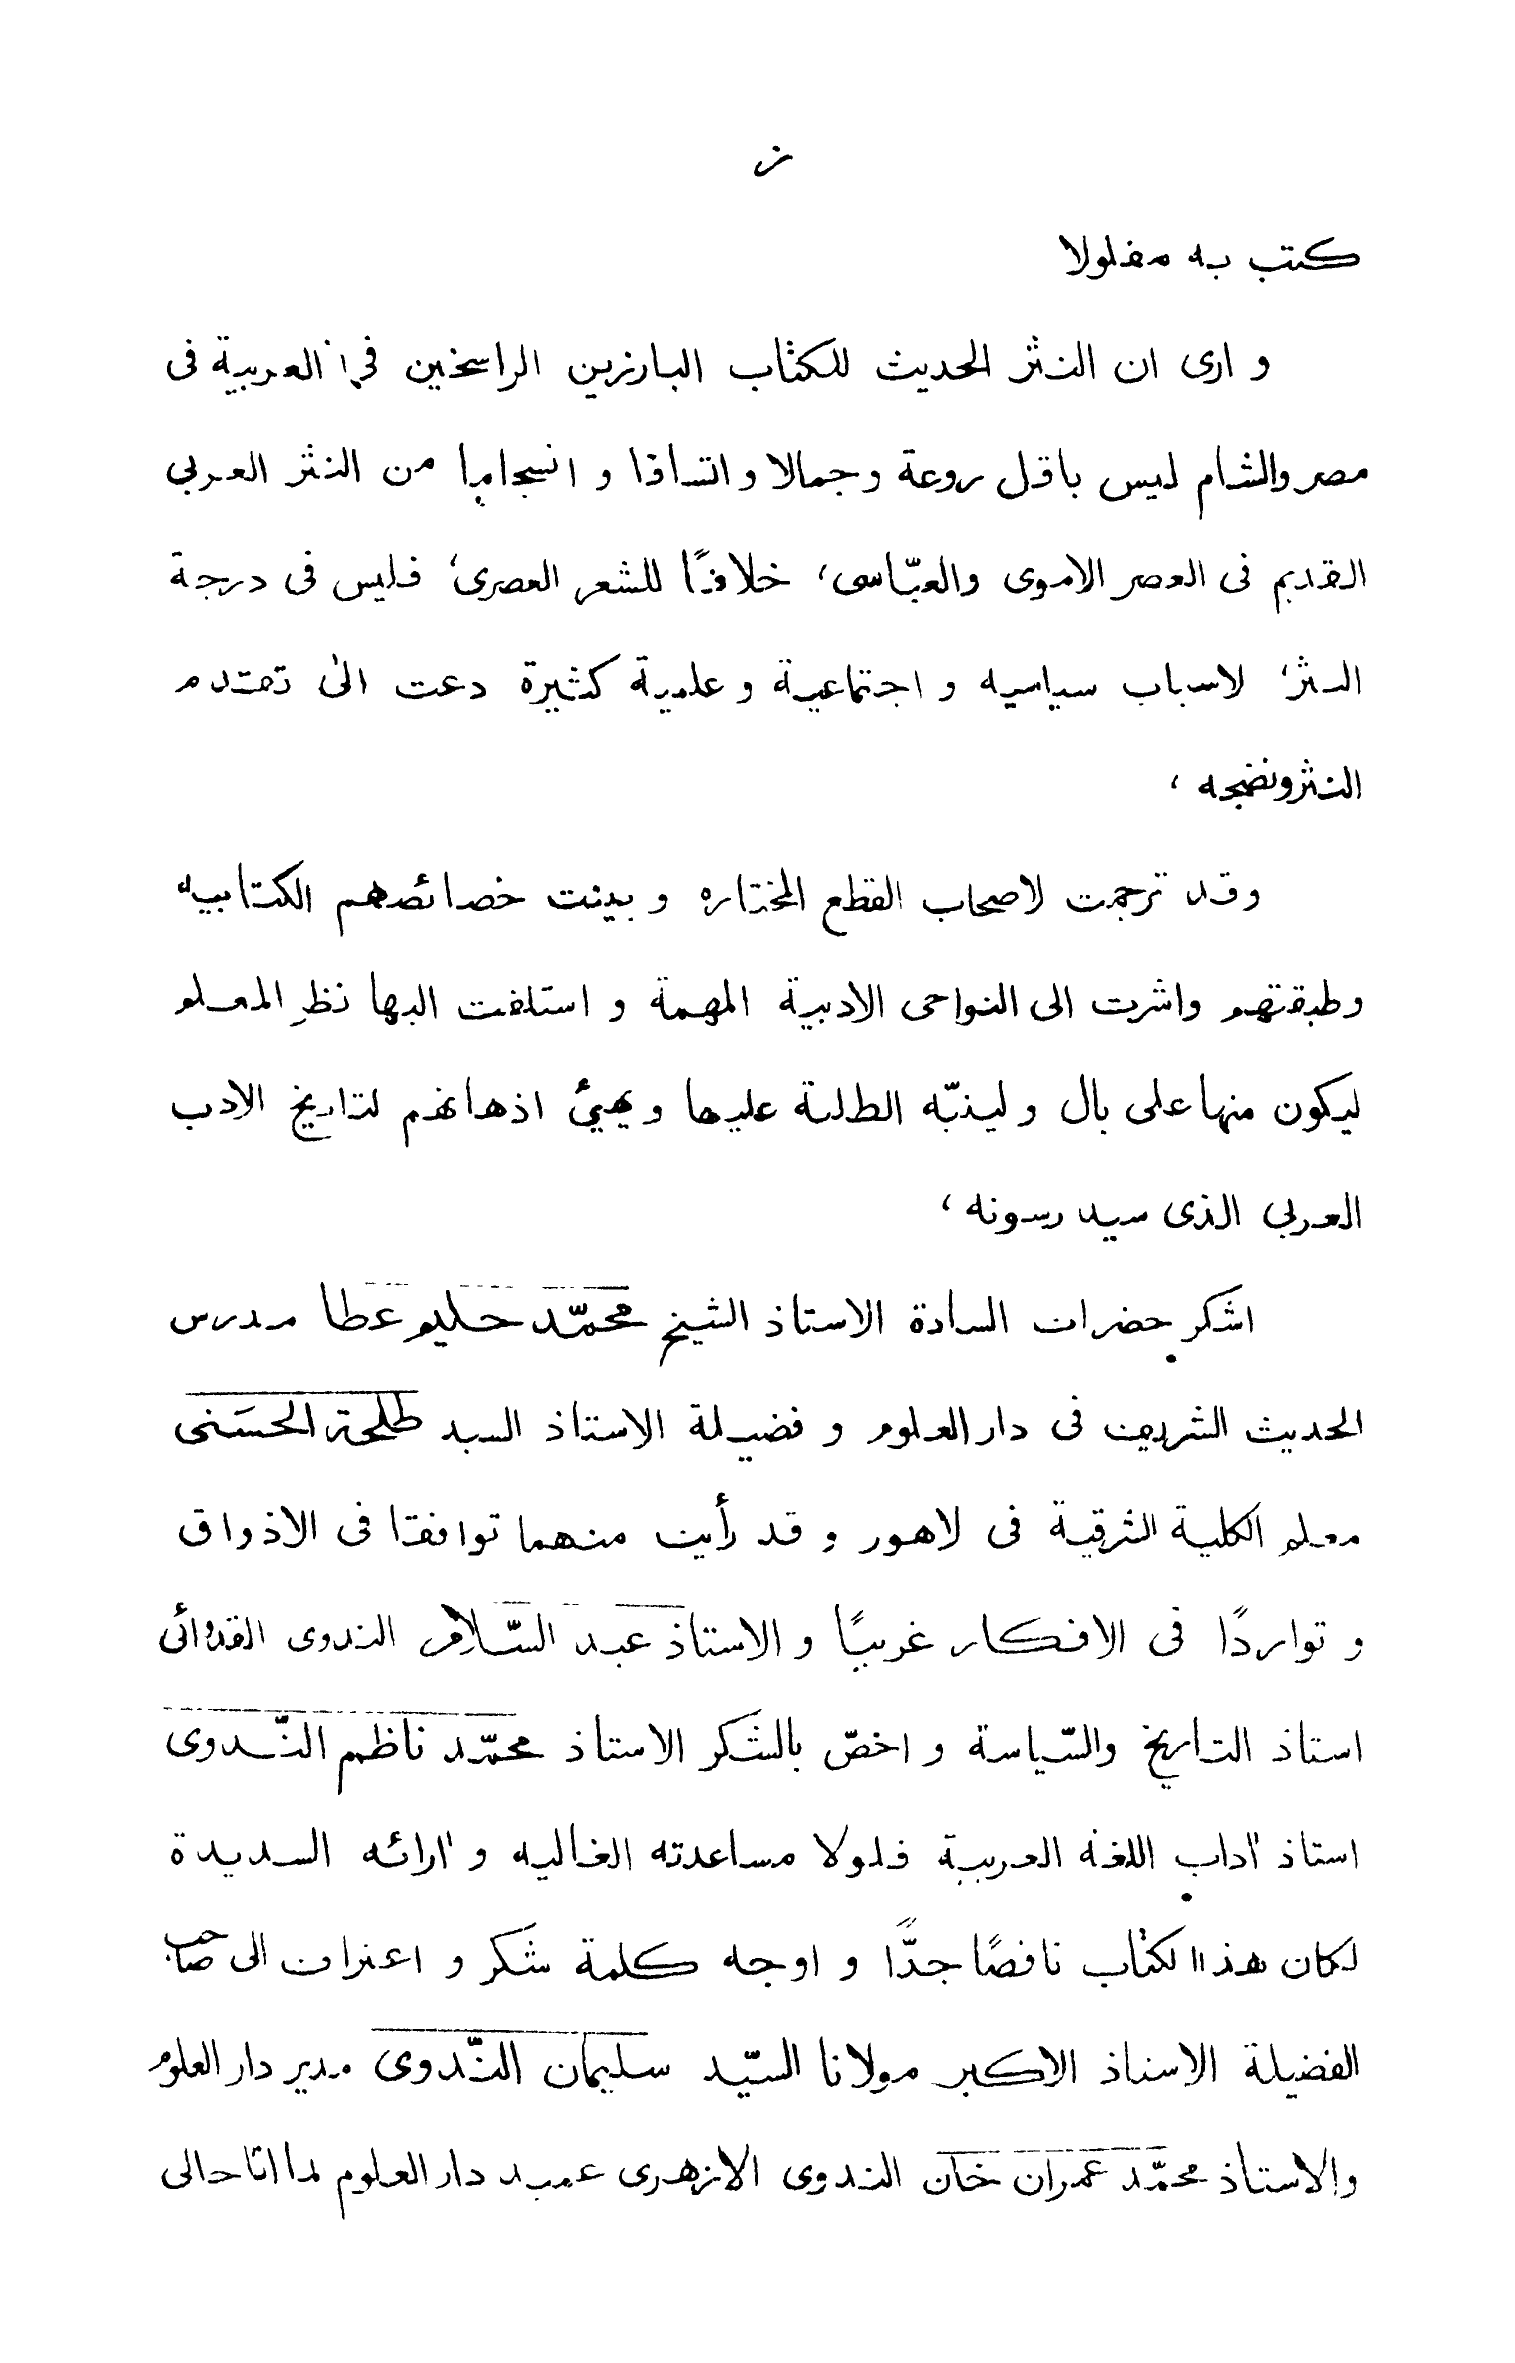 ز
كتب به مغلولا
و ارى ان النثر الحديث للكتاب البارزين الراسخين في العربية فى
مصر والشام ليس باقل روعة وجمالا و اتساقا و انسجاما من النثر العربي
القديم فى العصر الاموى والعبّاسى، خلافًا للشعر العصرى، فليس فى درجة
النثر، لاسباب سياسيه و اجتماعية و علمية كثيرة دعت الى تقدم
النثر ونضجه ،
وقد ترجمت لاصحاب القطع المختاره و بينت خصائصهم الكتابيه
وطبقتهم واشرت الى النواحى الادبية المهمة و استلفت اليها نظر المعلم
ليكون منها على بال ولينبّه الطلبة عليها ويهيئ اذهانهم لتاريخ الادب
العربي الذى سيدرسونه ،
اشكر حضرات السادة الاستاذ الشيخ محمّد حليم عطا مدرس
الحديث الشريف فى دار العلوم و فضيلة الاستاذ السيد طلحة الحسَنى
معلم الكلية الشرقية فى لاهور وقد رأيت منهما توافقا فى الاذواق
و تواردًا فى الافكار غريبًا و الاستاذ عبد السّلام الندوى القدوائى
استاذ التاريخ والسّياسة و اخصّ بالشكر الاستاذ محمّد ناظم النّدوى
استاذ آداب اللغة العربية فلولا مساعدته الغاليه و آرائه السديدة
لكان هذا الكتاب ناقصًا جدًّا و اوجه كلمة شكر و اعتراف الى صاحب
الفضيلة الاستاذ الاكبر مولانا السيّد سليمان النّدوى مدير دار العلوم
والاستاذ محمّد عمران خان الندوى الازهرى عميد دار العلوم لما اتاحا لى